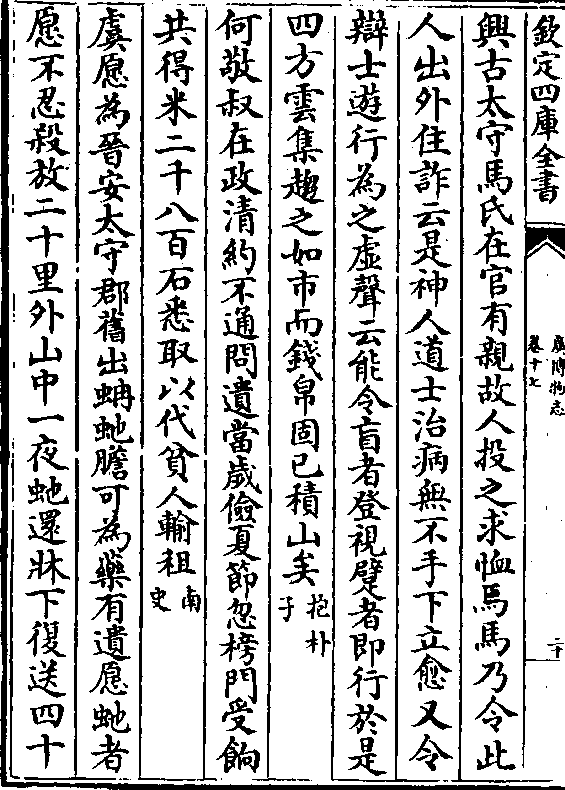 欽定四庫全書
廣博物志
卷十七
二十
興古太守馬氏在官有親故人投之求恤焉馬乃令此
人出外住詐云是神人道士治病無不手下立愈又令
辯士遊行為之虛聲云能令盲者登視躄者即行於是
四方雲集趨之如市而錢帛固已積山矣抱朴子
何敬叔在政清約不通問遺當歲儉夏節忽榜門受餉
共得米二千八百石悉取以代貧人輸租南史
虞愿為晉安太守郡舊出蚺虵膽可為藥有遺愿虵者
愿不忍殺放二十里外山中一夜虵還牀下復送四十